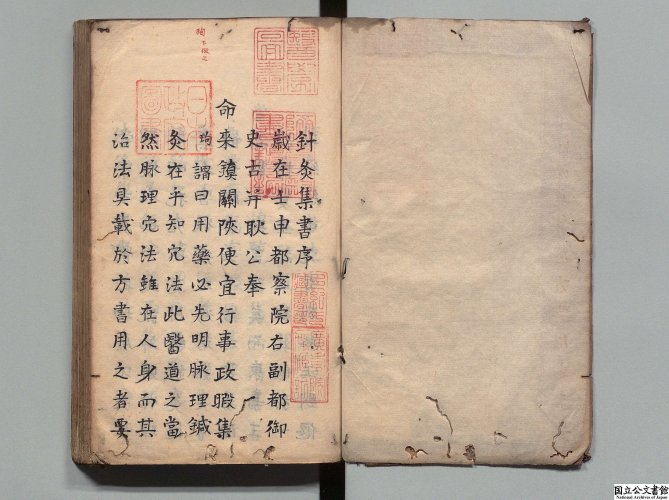 針灸集書序
歲在壬申都察院右副都御
史古并耿公奉
命來鎮關陝便宜行事政暇集
謂曰用藥必先明脉理鍼
灸在乎知穴法此醫道之當
然脉理穴法雖在人身而其
治法具載於方書用之者要
国立公文書館
National Archives of Japan